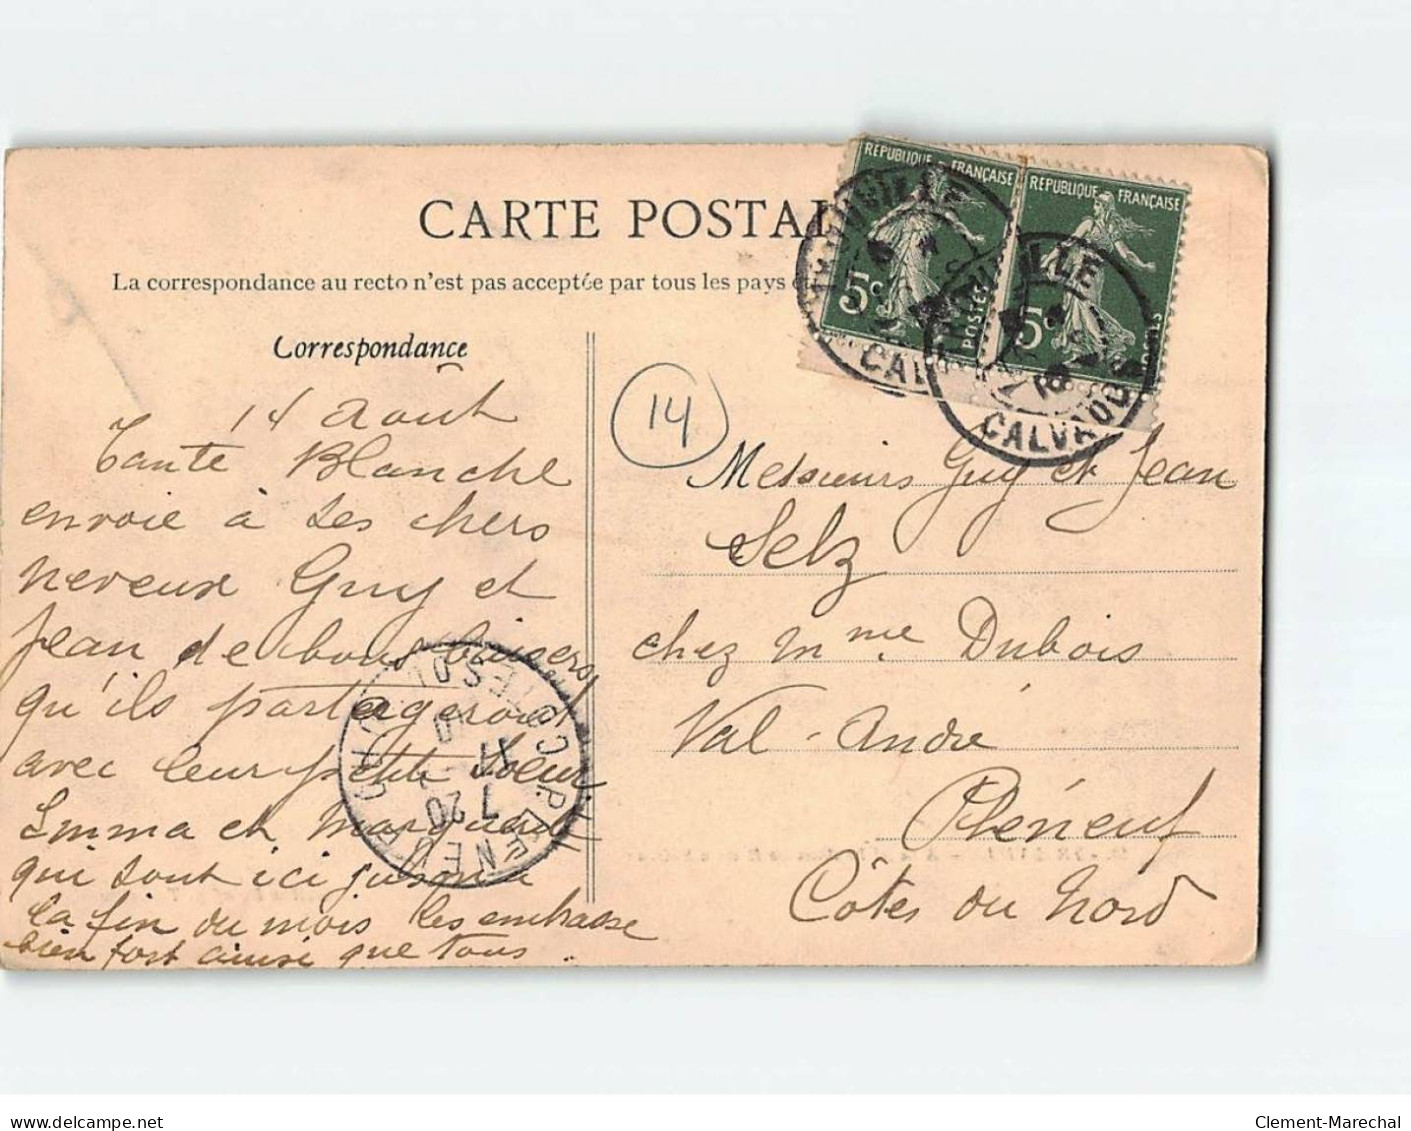 CARTE POSTAL
La correspondance au recto n'est pas acceptée par tous les pays
RÉPUBLIQUE FRANÇAISE
5c
POSTES
RÉPUBLIQUE FRANÇAISE
5c
TROUVILLE
CALVADOS
CALVADOS
Correspondance
14 Aout
Tante Blanche
envoie à ses chers
neveux Guy et
Jean de bons baisers
qu'ils partageront
avec leur petite soeur
Emma et Marguerite
qui sont ici jusqu'a
la fin du mois les embrasse
bien fort ainsi que tous.
14
Messieurs Guy et Jean
Selz
chez Mme Dubois
Val-André
Pléneuf
Côtes du Nord
PLENEUF
7 20
delcampe.net
Clement-Marechal